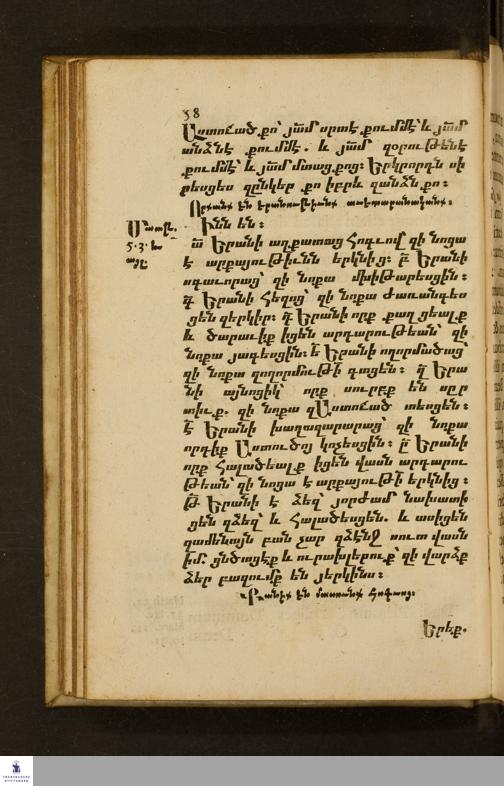 38
Աստուած. քո՝ յամ սրտէ քումմէ՝ և յամ
անձնէ քումմէ. և յամ զօրութենէ
քումմէ՝ և յամ մտաց քոց։ Երկրորդն սի
րեսցես զընկեր քո իբրև զանձն քո։
Որքանք են երանութիւնք աւետարանականք։
Մատթ.
5. 3. և
այլ
Ինն են։
ա Երանի աղքատաց Հոգւով՝ զի նոցա
է արքայութիւնն երկնից։ բ Երանի
սգաւորաց՝ զի նոքա մխիթարեսցին։
գ Երանի Հեզոց՝ զի նոքա ժառանգես
ցեն զերկիր։ դ Երանի որք քաղցեալք
և ծարաւիք իցեն արդարութեան՝ զի
նոքա յագեսցին։ ե Երանի ողորմածաց՝
զի նոքա զողորմութի գտցեն։ զ Երա
նի այնոցիկ՝ որք սուրբք են սըր
տիւք. զի նոքա զԱստուած տեսցեն։
է Երանի խաղաղարարաց՝ զի նոքա
որդիք Աստուծոյ կոչեսցին։ ը Երանի
որք Հալածեալք իցեն վասն արդարու
թեան՝ զի նոցա է արքայութի երկնից։
թ Երանի է ձեզ՝ յորժամ նախատի
ցեն զձեզ՝ և Հալածեսցեն. և ասիցեն
զամենայն բան չար զձէնջ սուտ վասն
իմ։ ցնծացէք և ուրախլերուք՝ զի վարձք
ձեր բազումք են յերկինս։
Քանիք են մատունք Հոգւոց։
Երեք.
TRANSKRIBUS